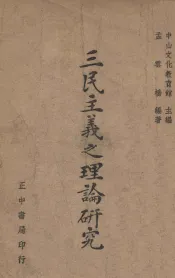 中山文化教育館主編
孟雲橋編著
三民主義之理論研究
正中書局印行